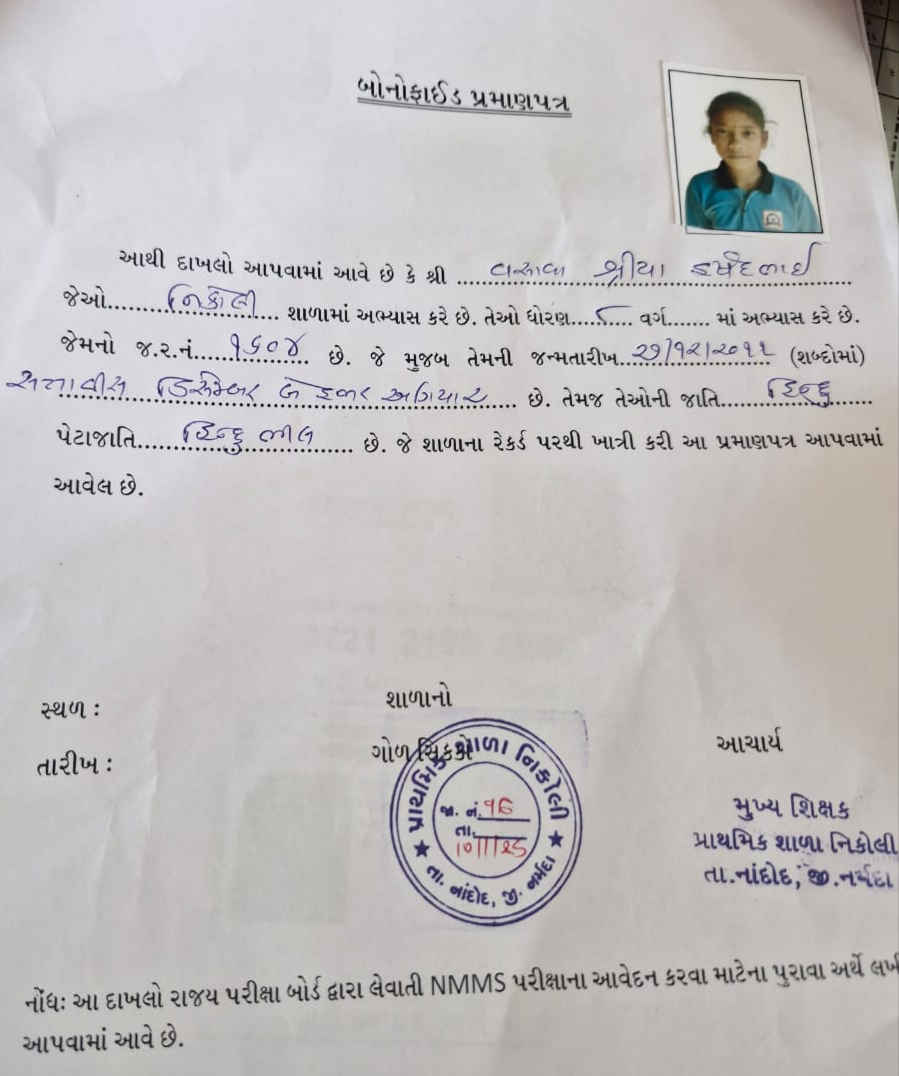 બોનોફાઈડ પ્રમાણપત્ર
આથી દાખલો આપવામાં આવે છે કે શ્રી વસાવા શ્રીયા
જેઓ નિકોલી શાળામાં અભ્યાસ કરે છે. તેઓ ધોરણ ૮ વર્ગ....... માં અભ્યાસ કરે છે.
જેમનો જ.ર.નં. ૧૬૦૪ છે. જે મુજબ તેમની જન્મતારીખ ૨૭/૧૨/૨૦૧૧ (શબ્દોમાં)
સત્તાવીસ ડિસેમ્બર બે હજાર અગિયાર છે. તેમજ તેઓની જાતિ હિન્દુ
પેટાજાતિ હિન્દુ ભીલ છે. જે શાળાના રેકર્ડ પરથી ખાત્રી કરી આ પ્રમાણપત્ર આપવામાં
આવેલ છે.
સ્થળ :
શાળાનો
તારીખ :
ગોળ સિક્કો
આચાર્ય
પ્રાથમિક શાળા નિકોલી
જા. નં. ૧૬
તા.
10/1/25
તા. નાંદોદ, જી. નર્મદા
મુખ્ય શિક્ષક
પ્રાથમિક શાળા નિકોલી
તા.નાંદોદ, જી.નર્મદા
નોંધઃ આ દાખલો રાજય પરીક્ષા બોર્ડ દ્વારા લેવાતી NMMS પરીક્ષાના આવેદન કરવા માટેના પુરાવા અર્થે લખી
આપવામાં આવે છે.